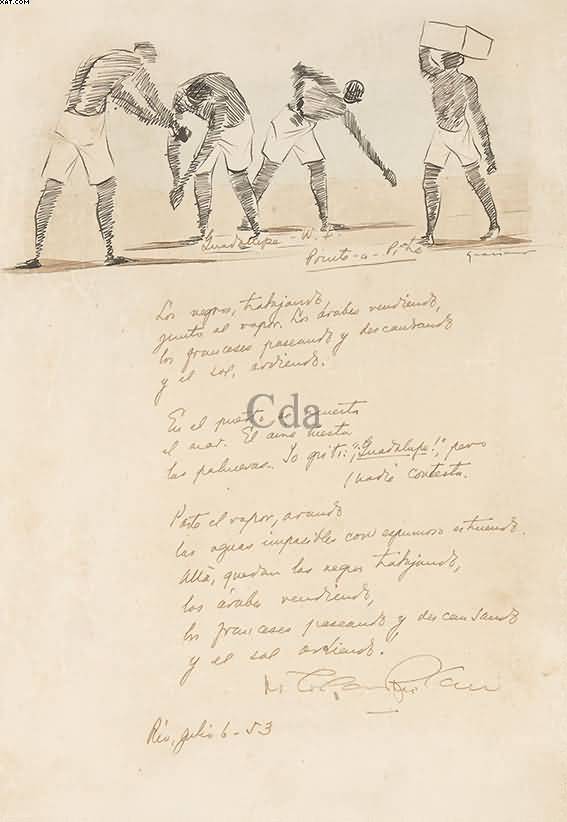 XAT.COM
Guadalupe - W. I.
Pointe-a-Pitre
Graciano
Los negros, trabajando,
junto al vapor. Los árabes vendiendo,
los franceses paseando y descansando
y el sol, ardiendo.
En el puerto se acuesta
el mar. El aire tuesta
las palmeras. Yo grito: "¡Guadalupe!", pero
nadie contesta.
Parte el vapor, arando
las aguas impasibles con espumoso estruendo.
Allá, quedan los negros trabajando,
los árabes vendiendo,
los franceses paseando y descansando
y el sol ardiendo.
Cda
Río, julio 6-53